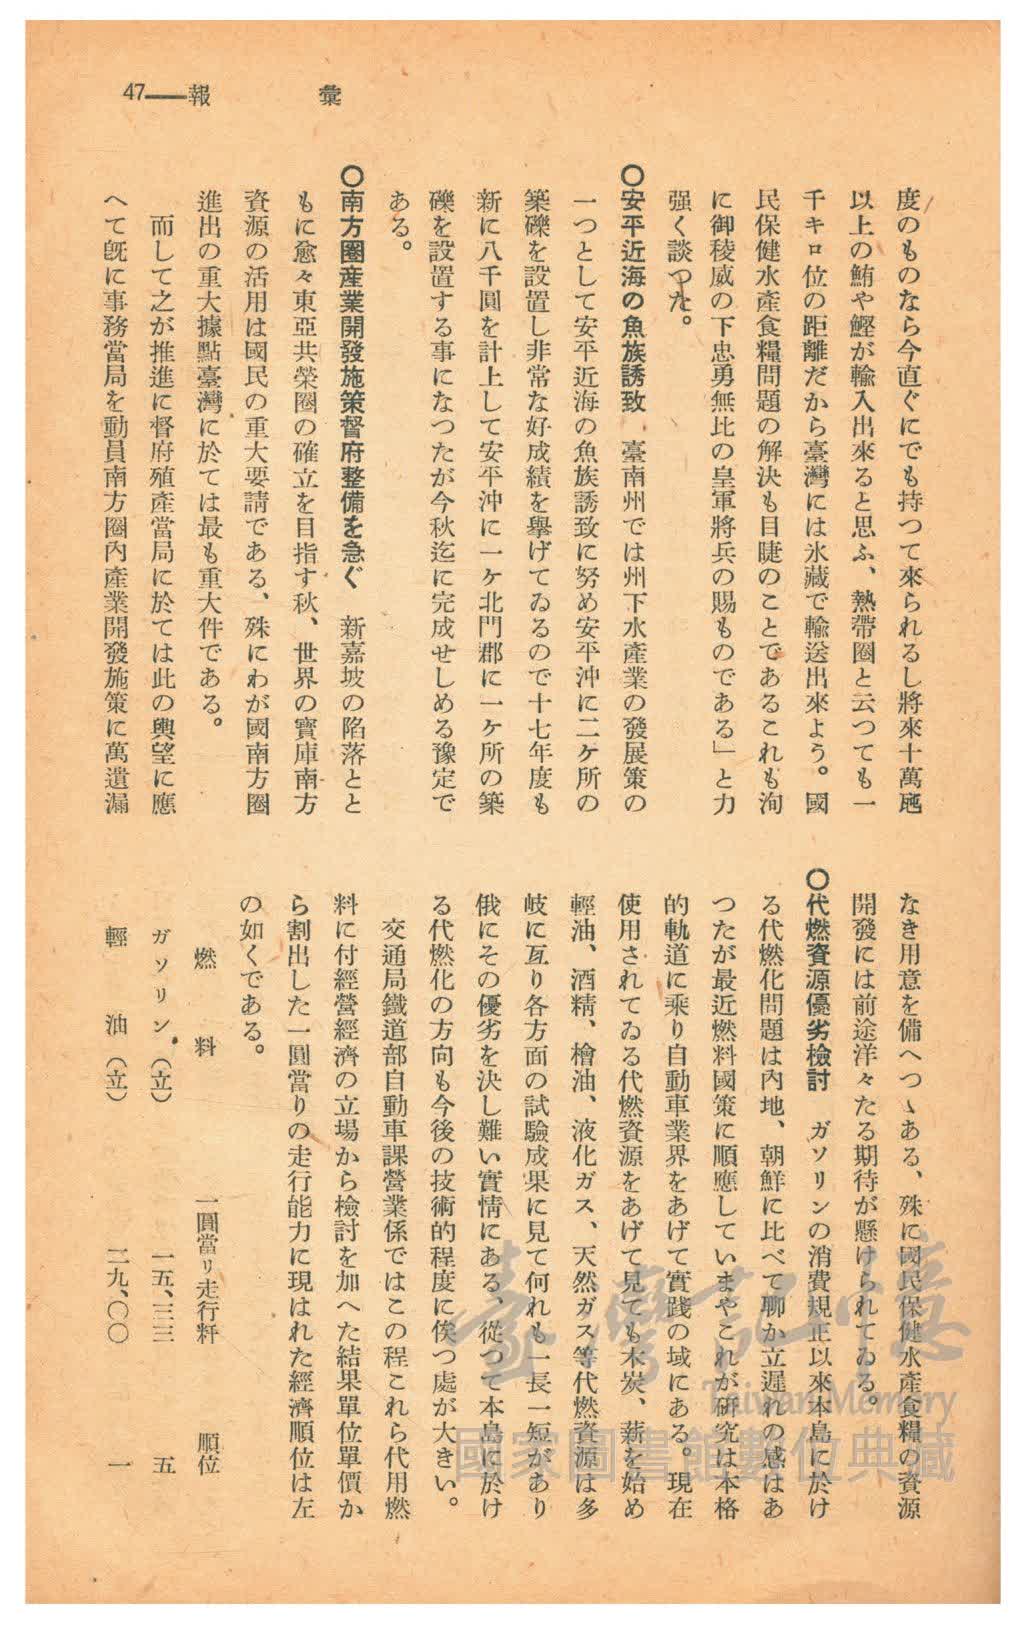 47——報　彙
度のものなら今直ぐにでも持つて來られるし將來十萬瓲
以上の鮪や鰹が輸入出來ると思ふ、熱帶圈と云つても一
千キロ位の距離だから臺灣には氷藏で輸送出來よう。國
民保健水產食糧問題の解決も目睫のことであるこれも洵
に御稜威の下忠勇無比の皇軍將兵の賜ものである」と力
强く談つた。
〇安平近海の魚族誘致　臺南州では州下水產業の發展策の
一つとして安平近海の魚族誘致に努め安平沖に二ケ所の
築磯を設置し非常な好成績を擧げてゐるので十七年度も
新に八千圓を計上して安平沖に一ケ北門郡に一ケ所の築
磯を設置する事になつたが今秋迄に完成せしめる豫定で
ある。
〇南方圈產業開發施策督府整備を急ぐ　新嘉坡の陷落とと
もに愈々東亞共榮圈の確立を目指す秋、世界の寶庫南方
資源の活用は國民の重大要請である、殊にわが國南方圈
進出の重大據點臺灣に於ては最も重大件である。
而して之が推進に督府殖產當局に於ては此の輿望に應
へて旣に事務當局を動員南方圈內產業開發施策に萬遺漏
なき用意を備へつゝある、殊に國民保健水產食糧の資源
開發には前途洋々たる期待が懸けられてゐる。
〇代燃資源優劣檢討　ガソリンの消費規正以來本島に於け
る代燃化問題は內地、朝鮮に比べて聊か立遲れの感はあ
つたが最近燃料國策に順應していまやこれが硏究は本格
的軌道に乘り自動車業界をあげて實踐の域にある。現在
使用されてゐる代燃資源をあげて見ても木炭、薪を始め
輕油、酒精、檜油、液化ガス、天然ガス等代燃資源は多
岐に亙り各方面の試驗成果に見て何れも一長一短があり
俄にその優劣を決し難い實情にある、從つて本島に於け
る代燃化の方向も今後の技術的程度に俟つ處が大きい。
交通局鐵道部自動車課營業係ではこの程これら代用燃
料に付經營經濟の立場から檢討を加へた結果單位單價か
ら割出した一圓當りの走行能力に現はれた經濟順位は左
の如くである。
燃料　一圓當リ走行粁　順位
ガソリン（立）　一五、三三　五
輕油（立）　二九、〇〇　一
臺灣記憶
Taiwan Memory
國家圖書館數位典藏